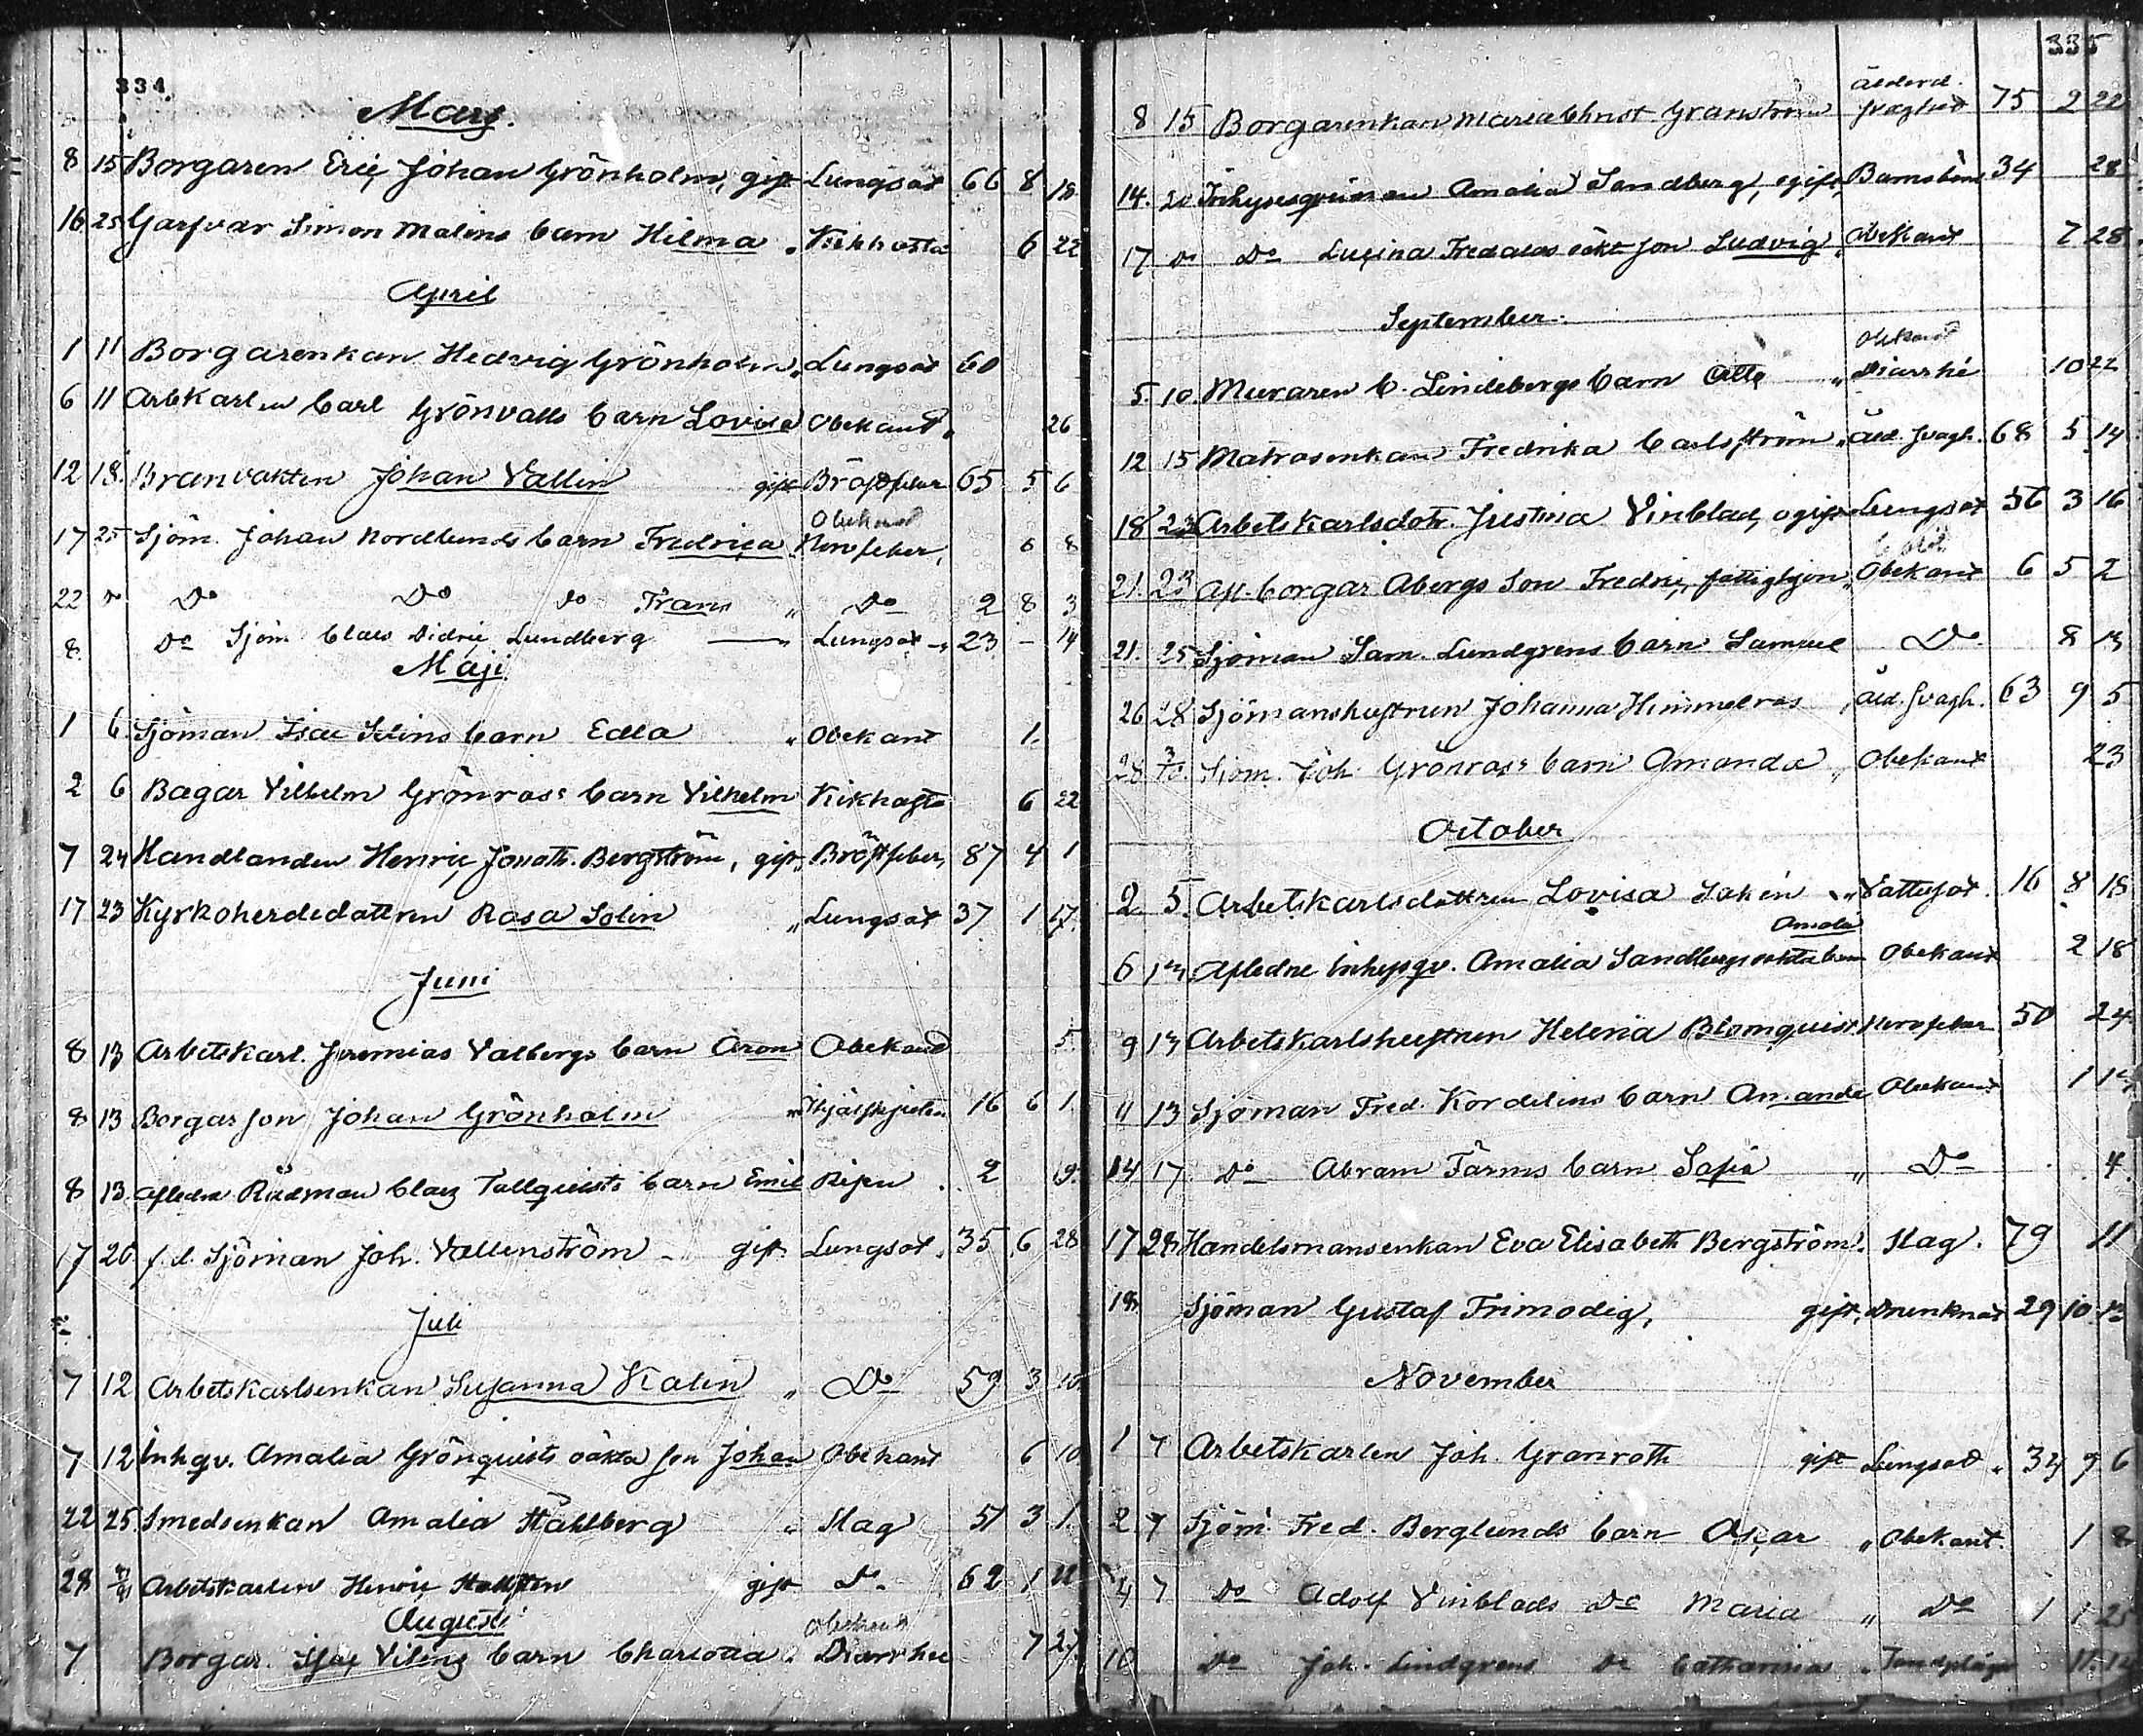 334.
Mars.
8 15 Borgaren Eric Johan Grönholm, gift Lungsot 66 8 18
16 25 Garfvar Simon Malins barn Hilma „ Kikhosta 6 22
April
1 11 Borgarenkan Hedvig Grönholm „ Lungsot 60
6 11 Arbkarlen Carl Grönvalls barn Lovisa Obekant „ 26
12 18. Branvakten Johan Vallin gift Bröstfeber 65 5 6
Obekand
17 25 Sjöm. Johan Nordlunds barn Fredrica Nervfeber, 6 8
22 Do Do Do Frans „ Do 2 8 3
8. Do Sjöm. Claes Didric Lundberg — „ Lungsot 23 - 14
Maji
1 6. Sjöman Isac Selins barn Edla „ Obekant 1.
2 6 Bagar Vilhelm Grönroos barn Vilhelm Kikhosta 6 22
7 24 Handlanden Henric Jonath. Bergström, gift, Bröstfeber, 87 4 1
17 23 Kyrkoherdedottren Rosa Solin „ Lungsot 37 1 17.
Juni
8 13 Arbetskarl. Jeremias Valbergs barn Aron Obekand 5.
8 13 Borgarson Johan Grönholm „ 16 6 1.
8 13. Afledne Rådman Claes Tallquists barn Emil Risen . 2 19.
17 20 f.d. Sjöman Joh. Vallenström - gift Lungsot . 35 6 28
Juli
7 12 Arbetskarlsenkan Susanna Kalen „ Do 59 3 10
7 12 Inhqv. Amalia Grönquists oäkta son Johan Obekant 6 10
22 25 Smedsenkan Amalia Ståhlberg „ Slag 51 3 1.
28 Arbetskarlen Henric gift Do 62 1 22
Augusti
Obekand
7 Borgar. Isac barn Charlotta „ Diarrhee 7 27
335
ålderd.
8 15 Borgarenkan Maria Christ Granström svaghet 75 2 22
14. 20 Inhysesqvinnan Amalia Sandberg, ogift Barnsäng 34 28
17 Do Do Lucina Fredalas oäkt son Ludvig „ Obekant 7 28
September.
Obekand
5. 10. Muraren C. Lindebergs barn Otto „ Diarrhé 10 22
12 15 Matrosenkan Fredrika Carlström „ Åld. svagh. 68 5 14
18 23 Arbetskarlsdotr. Justina Vinblad, ogift Lungsot 56 3 16
21. 23 Afl. borgar Åbergs Son Fredric, fattighjon „ Obekant 6 5 2
21. 25 Sjöman Sam. Lundgrens barn Samuel Do 8 13
26 28 Sjömanshustrun Johanna Himmelros „ Åld. svagh. 63 9 5
28 30. Sjöm. Joh. Grönroos barn Amanda „ Obekant 23
October
2. 5. Arbetskarlsdottren Lovisa Sakén „ Vattusot. 16 8 18
Amalia
6 13 Afledne Inhysqv. Amalia Sandbergs oäkta barn Obekant 2 18
9 13 Arbetskarlshustrun Helena Blomquist Nervfeber 50 24
11 13 Sjöman Fred. Kordelins barn Amanda Obekant 1 12
14 17 Do Abram Färms barn Sofia „ Do . 4.
17 28 Handelsmansenkan Eva Elisabeth Bergström „ Slag . 79 11
18 Sjöman Gustaf Frimodig, gift, Drunknat 29 10
November
1 7 Arbetskarlen Joh. Granroth gift Lungsot „ 34 9 6
2 7 Sjöm. Fred. Berglunds barn Oscar „ Obekant. 1 2
4 7 Do Adolf Vinblads Do Maria „ Do 1 1 25
10 Do Joh. Lindgrens Do Catharina „ 11 12